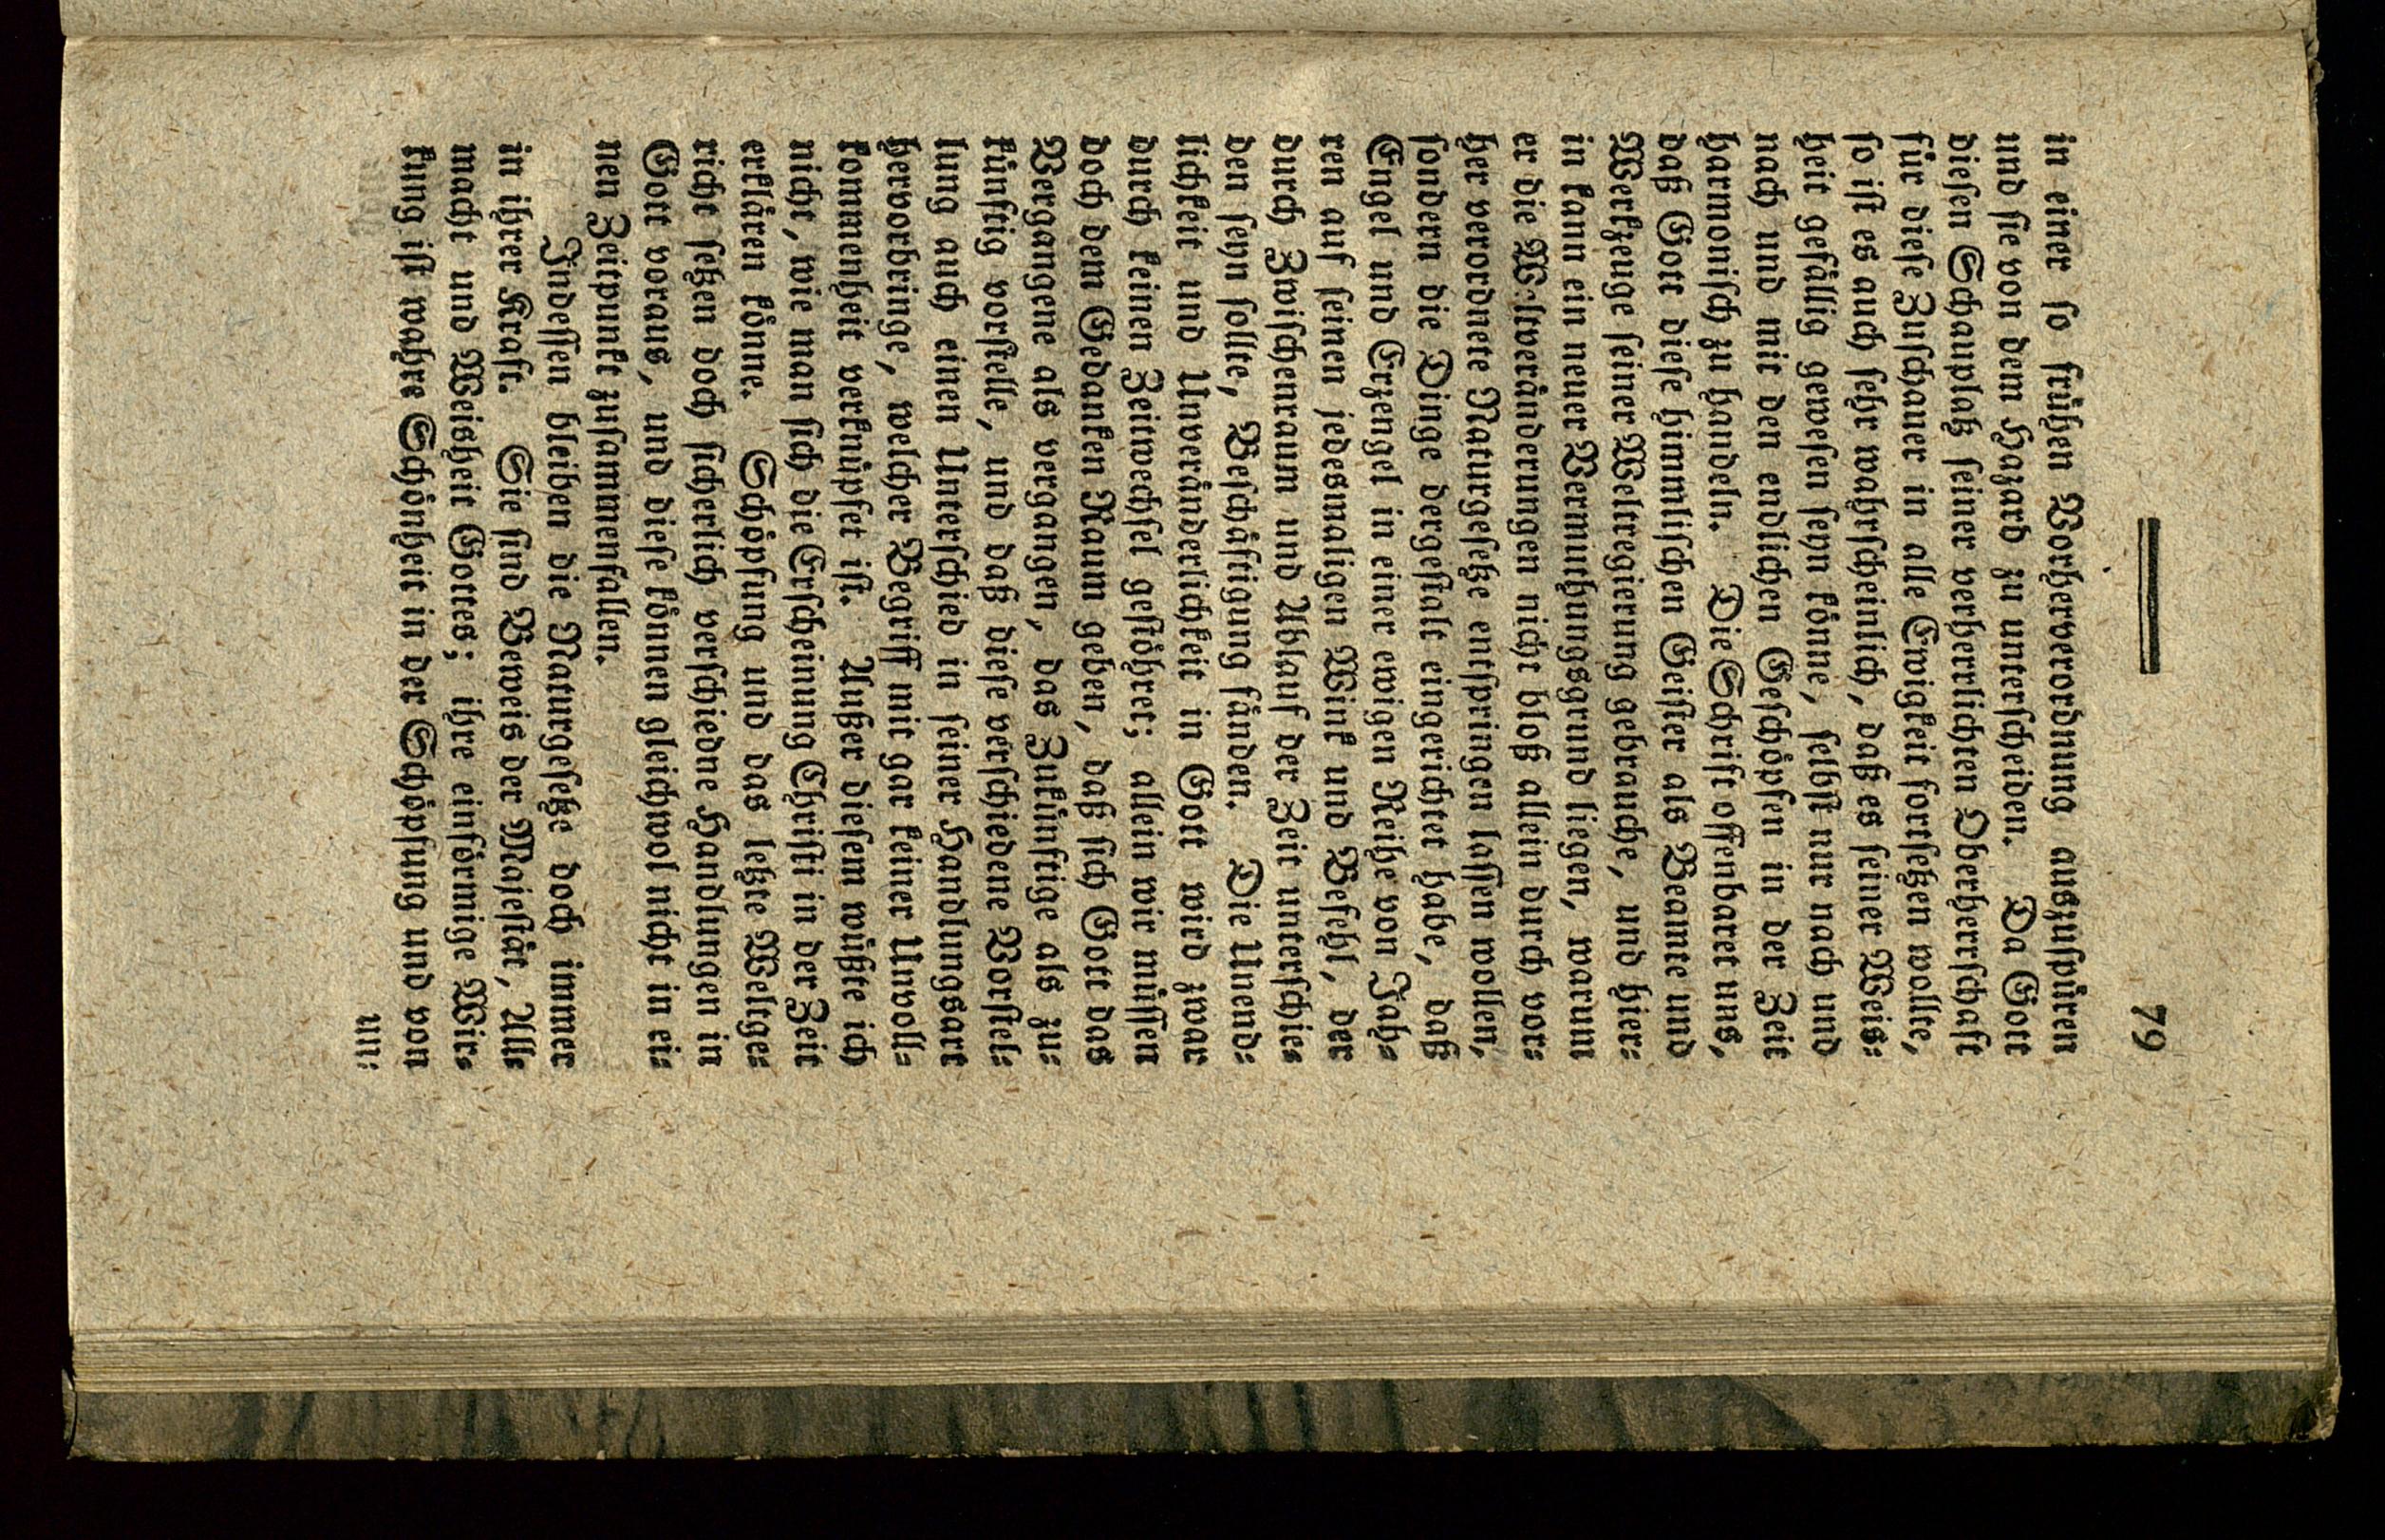 79
in einer ſo frühen Vorherverordnung auszuſpüren
und ſie von dem Hazard zu unterſcheiden. Da Gott
dieſen Schauplatz ſeiner verherrlichten Oberherrſchaft
für dieſe Zuſchauer in alle Ewigkeit fortſetzen wollte,
ſo iſt es auch ſehr wahrſcheinlich, daß es ſeiner Weis⸗
heit gefällig geweſen ſeyn könne, ſelbſt nur nach und
nach und mit den endlichen Geſchöpfen in der Zeit
harmoniſch zu handeln. Die Schrift offenbaret uns,
daß Gott dieſe himmliſchen Geiſter als Beamte und
Werkzeuge ſeiner Weltregierung gebrauche, und hier⸗
in kann ein neuer Vermuthungsgrund liegen, warum
er die W:ltveränderungen nicht bloß allein durch vor⸗
her verordnete Naturgeſetze entſpringen laſſen wollen,
ſondern die Dinge dergeſtalt eingerichtet habe, daß
Engel und Erzengel in einer ewigen Reihe von Jah⸗
ren auf ſeinen jedesmaligen Wink und Befehl, der
durch Zwiſchenraum und Ablauf der Zeit unterſchie⸗
den ſeyn ſollte, Beſchäftigung fänden. Die Unend⸗
lichkeit und Unveränderlichkeit in Gott wird zwar
durch keinen Zeitwechſel geſtöhret; allein wir müſſen
doch dem Gedanken Raum geben, daß ſich Gott das
Vergangene als vergangen, das Zukünftige als zu⸗
künftig vorſtelle, und daß dieſe verſchiedene Vorſtel⸗
lung auch einen Unterſchied in ſeiner Handlungsart
hervorbringe, welcher Begriff mit gar keiner Unvoll⸗
kommenheit verknüpfet iſt. Außer dieſem wüßte ich
nicht, wie man ſich die Erſcheinung Chriſti in der Zeit
erklären könne. Schöpfung und das letzte Weltge⸗
richt ſetzen doch ſicherlich verſchiedne Handlungen in
Gott voraus, und dieſe können gleichwol nicht in ei⸗
nen Zeitpunkt zuſammenfallen.
Indeſſen bleiben die Naturgeſetze doch immer
in ihrer Kraft. Sie ſind Beweis der Majeſtät, All⸗
macht und Weisheit Gottes; ihre einförmige Wir⸗
kung iſt wahre Schönheit in der Schöpfung und von
un⸗